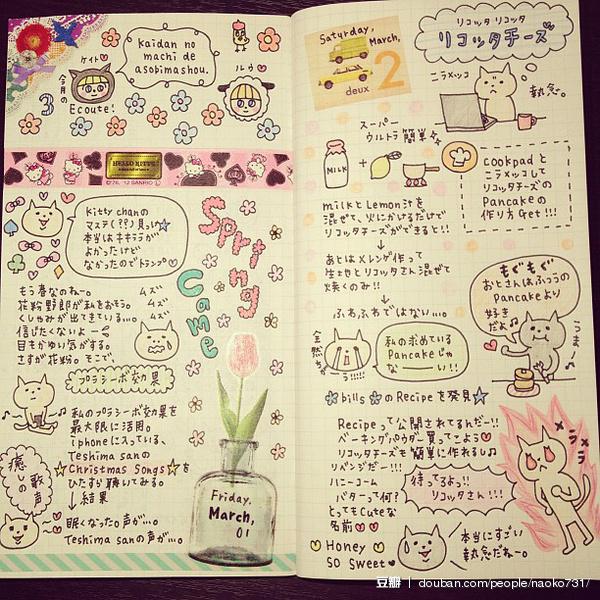 Kaidan no
machi de
asobimashou.
ケイト♡
ルウ♡
今月の
3
Ecoute!
HELLO KITTY
©'76, '12 SANRIO
Kitty chanの
マステ(??)買った☆
本当はキキララが
よかったけど
なかったのでトランプ♡
Spring
Came
もう春なのねー。
花粉野郎が私をおそう。
くしゃみが出てきている...。
信じたくないよー
目もかゆい気がする。
さすが花粉。そこで、
ムズ
ムズ
ムズ
プラシーボ効果
♪私のプラシーボ効果を
最大限に活用。
iphoneに入っている、
Teshima sanの
☆Christmas Songs☆を
ひたすら聴いてみる。
↓結果
眠くなった。声が...。
Teshima sanの声が...。
癒しの歌声
Friday,
March,
01
Saturday,
March,
2
deux
リコッタ リコッタ
リコッタチーズ
ニラメッコ
執念。
スーパー
ウルトラ簡単
MILK
+
cookpadと
ニラメッコして
リコッタチーズの
Pancakeの
作り方Get!!!
milkとLemon汁を
混ぜて、火にかけるだけで
リコッタチーズができると!!
↓
あとはメレンゲ作って
生地とリコッタさん混ぜて
焼くのみ!!
↓
ふわふわではない...。
全然ちがう!!!!!
私の求めている
Pancakeじゃ
なーーい!!
もぐもぐ
おとさんはふつうの
Pancakeより
好き
だよ♪
うまー
☆billsのRecipeを発見☆
Recipeって公開されてるんだー!!
ベーキングパウダー買ってこよう♡
リコッタチーズも簡単に作れるし♪
リベンジだー!!!
ハニーコーム
バターって何?
とってもcuteな
名前♡♡
待ってろよっ!!
リコッタさん!!!
メラメラ
♡Honey
SO Sweet♥
本当にすごい
執念だねー。
豆瓣 | douban.com/people/naoko731/